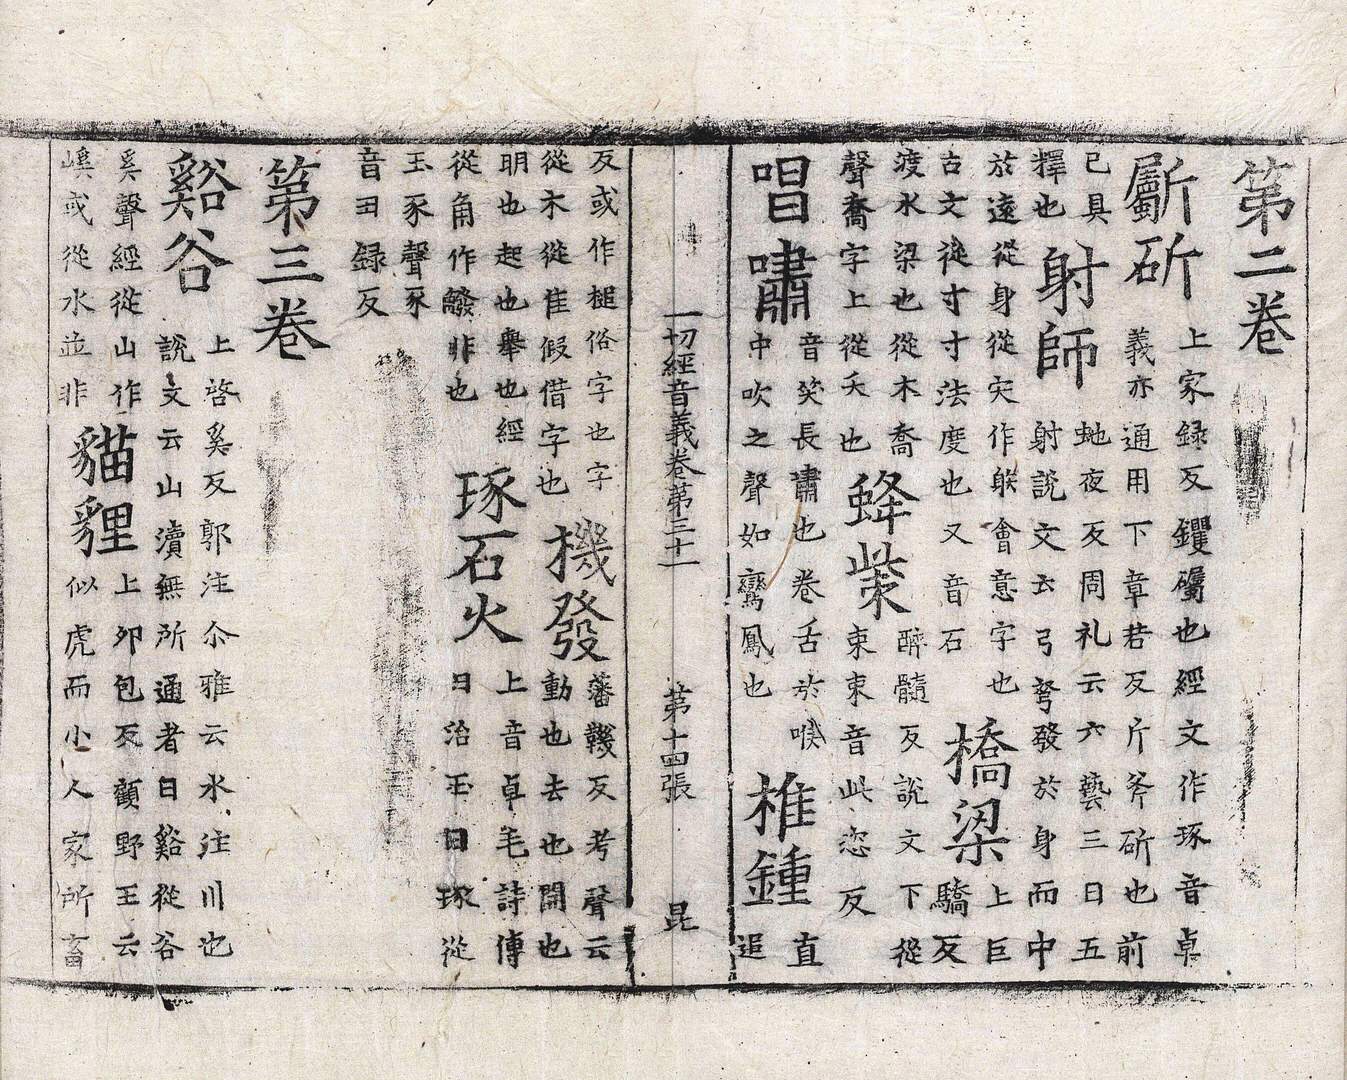 第二卷
斸斫
上家録反钁斸也經文作琢音卓
義亦通用下章若反斤斧斫也前
已具
釋也
射師
虵夜反周礼云六藝三曰五
射說文云弓弩發於身而中
於遠從身從矢作躲會意字也
古文從寸寸法度也又音石
橋梁
上巨
驕反
渡水梁也從木喬
聲喬字上從夭也
蜂㭰
醉髓反說文下從
朿朿音此恣反
唱嘯
音笑長嘯也卷舌於喉
中吹之聲如鸞鳳也
椎鍾
直
追
一切經音義卷第三十一 第十四張 昆
反或作槌俗字也字
從木從隹假借字也
機發
藩韈反考聲云
動也去也開也
明也起也舉也經
從角作非也
琢石火
上音卓毛詩傳
曰治玉曰琢從
玉豖聲豖
音丑録反
第三卷
谿谷
上啓奚反郭注尒雅云水注川也
說文云山瀆無所通者曰谿從谷
奚聲經從山作
嵠或從水並非
貓貍
上夘包反顧野王云
似虎而小人家所畜